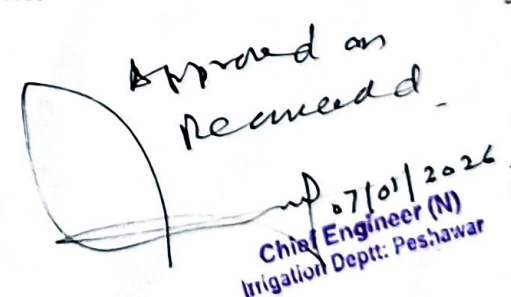 Approved as
Recommended.
07/01/2026
Chief Engineer (N)
Irrigation Deptt: Peshawar